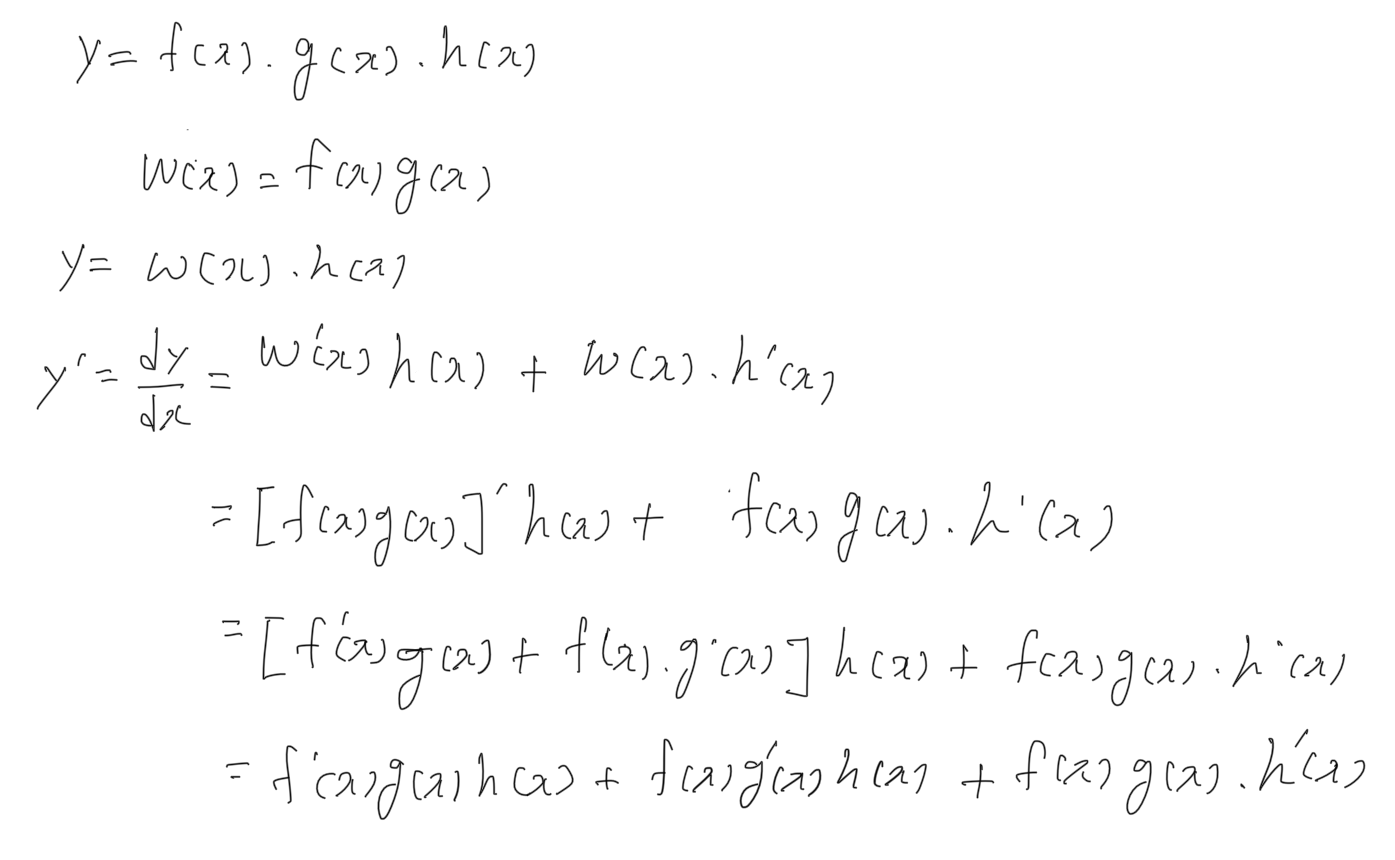 y = f(x) . g(x) . h(x)
w(x) = f(x) g(x)
y = w(x) . h(x)
y' = dy/dx = w'(x) h(x) + w(x) . h'(x)
= [f(x)g(x)]' h(x) + f(x) g(x) . h'(x)
= [f'(x)g(x) + f(x) . g'(x)] h(x) + f(x)g(x) . h'(x)
= f'(x)g(x)h(x) + f(x)g'(x)h(x) + f(x)g(x) . h'(x)